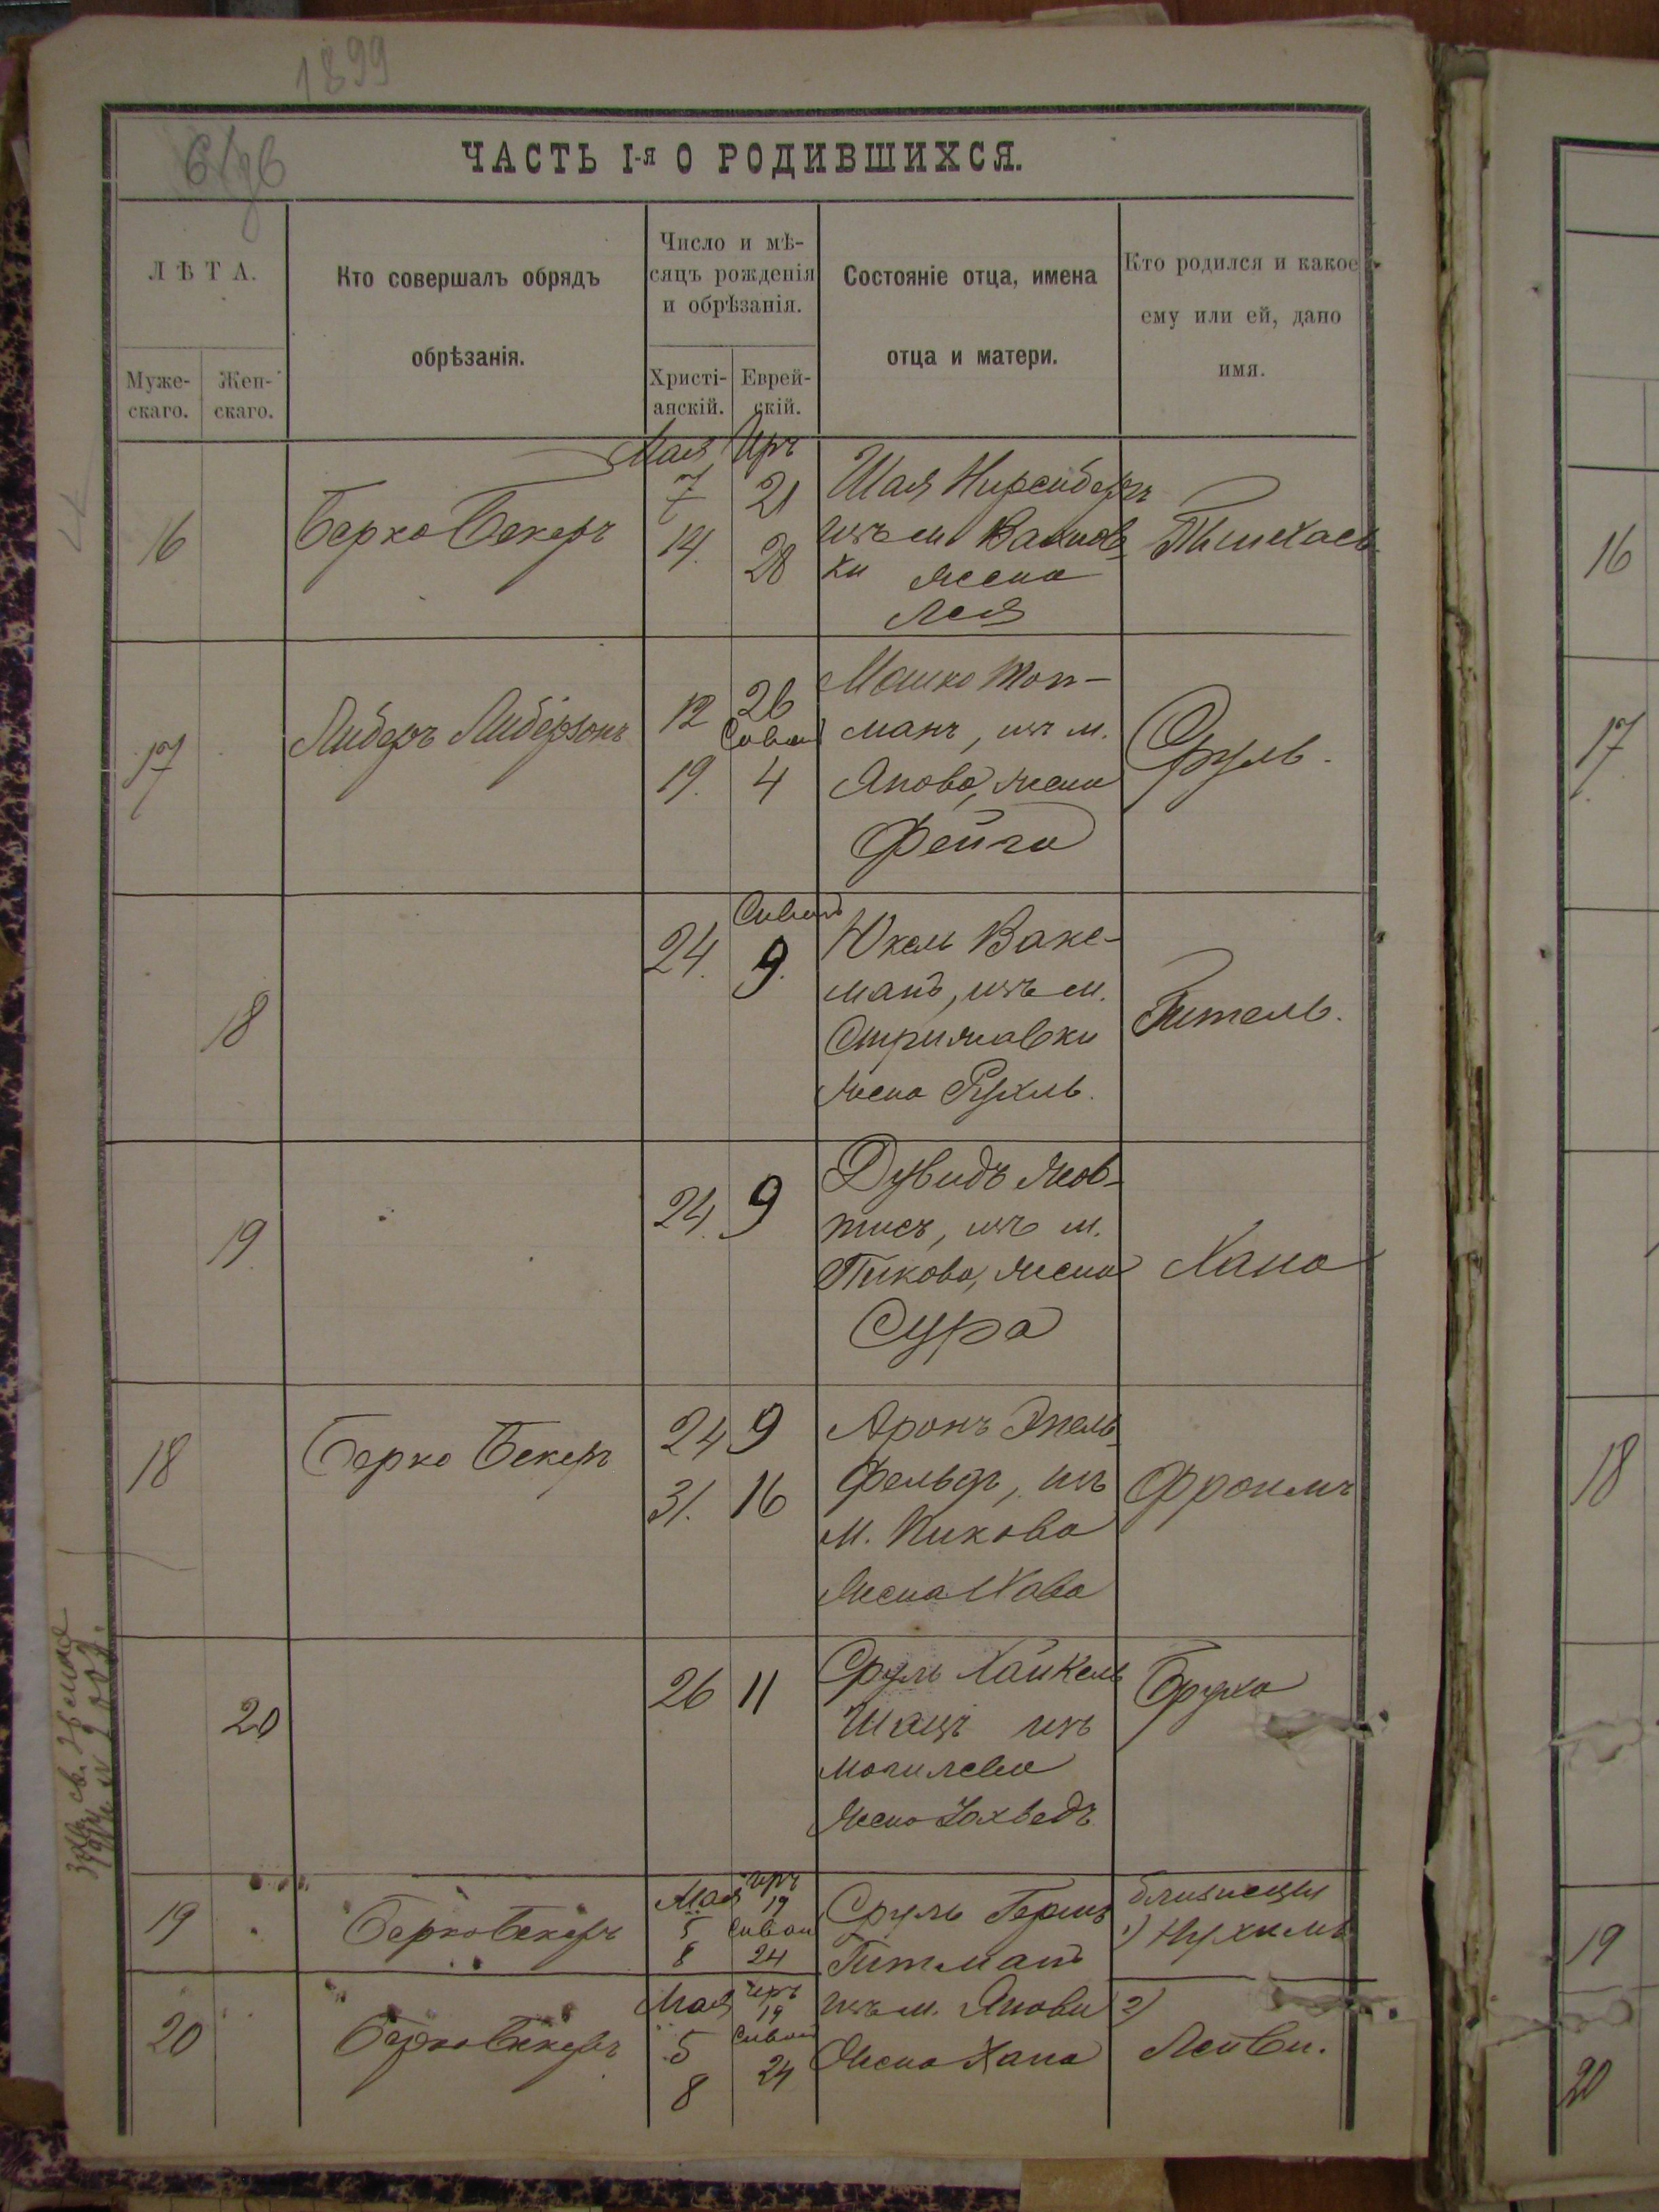 1899
ЧАСТЬ I-я О РОДИВШИХСЯ.
ЛѢТА.
Муже-
скаго.
Жен-
скаго.
Кто совершалъ обрядъ
обрѣзанія.
Число и мѣ-
сяцъ рожденія
и обрѣзанія.
Христі-
анскій.
Еврей-
скій.
Состояніе отца, имена
отца и матери.
Кто родился и какое
ему или ей, дано
имя.
Мая Иръ
16
Берко Бекеръ
7 21
14. 28
Шая Ниренбергъ
изъ м Вахнов
ки жена
Лея
Пинхасъ
16
17
Либеръ Либерзонъ
12 26
Сиван
19. 4
Мошко Топ-
манъ, изъ м.
Янова, жена
Фейга
Сруль.
17
18
Сиванъ
24. 9.
Юкель Вакс-
манъ, изъ м.
Стрижавки
жена Рухль.
Гитель.
19
24. 9
Дувидъ Жов-
тисъ, изъ м.
Пикова, жена
Сура
Хана
18
Берко Бекеръ
24 9
31. 16
Аронъ Эпель-
фельдъ, изъ
м. Пикова
жена Хава
Фроимъ
18
20
26 11
Сруль Хайкель
Шацъ изъ
Могилева
жена Юхведъ
Бруха
19
Берко Бекеръ
Мая иръ
5 19
Сиван
8 24
Сруль Гершъ
Гитманъ
близнецы
1) Нухимъ
19
20
Берко Бекеръ
Мая иръ
19
5 Сиван
8 24
изъ м. Янова
жена Хана
2)
Лейви.
20